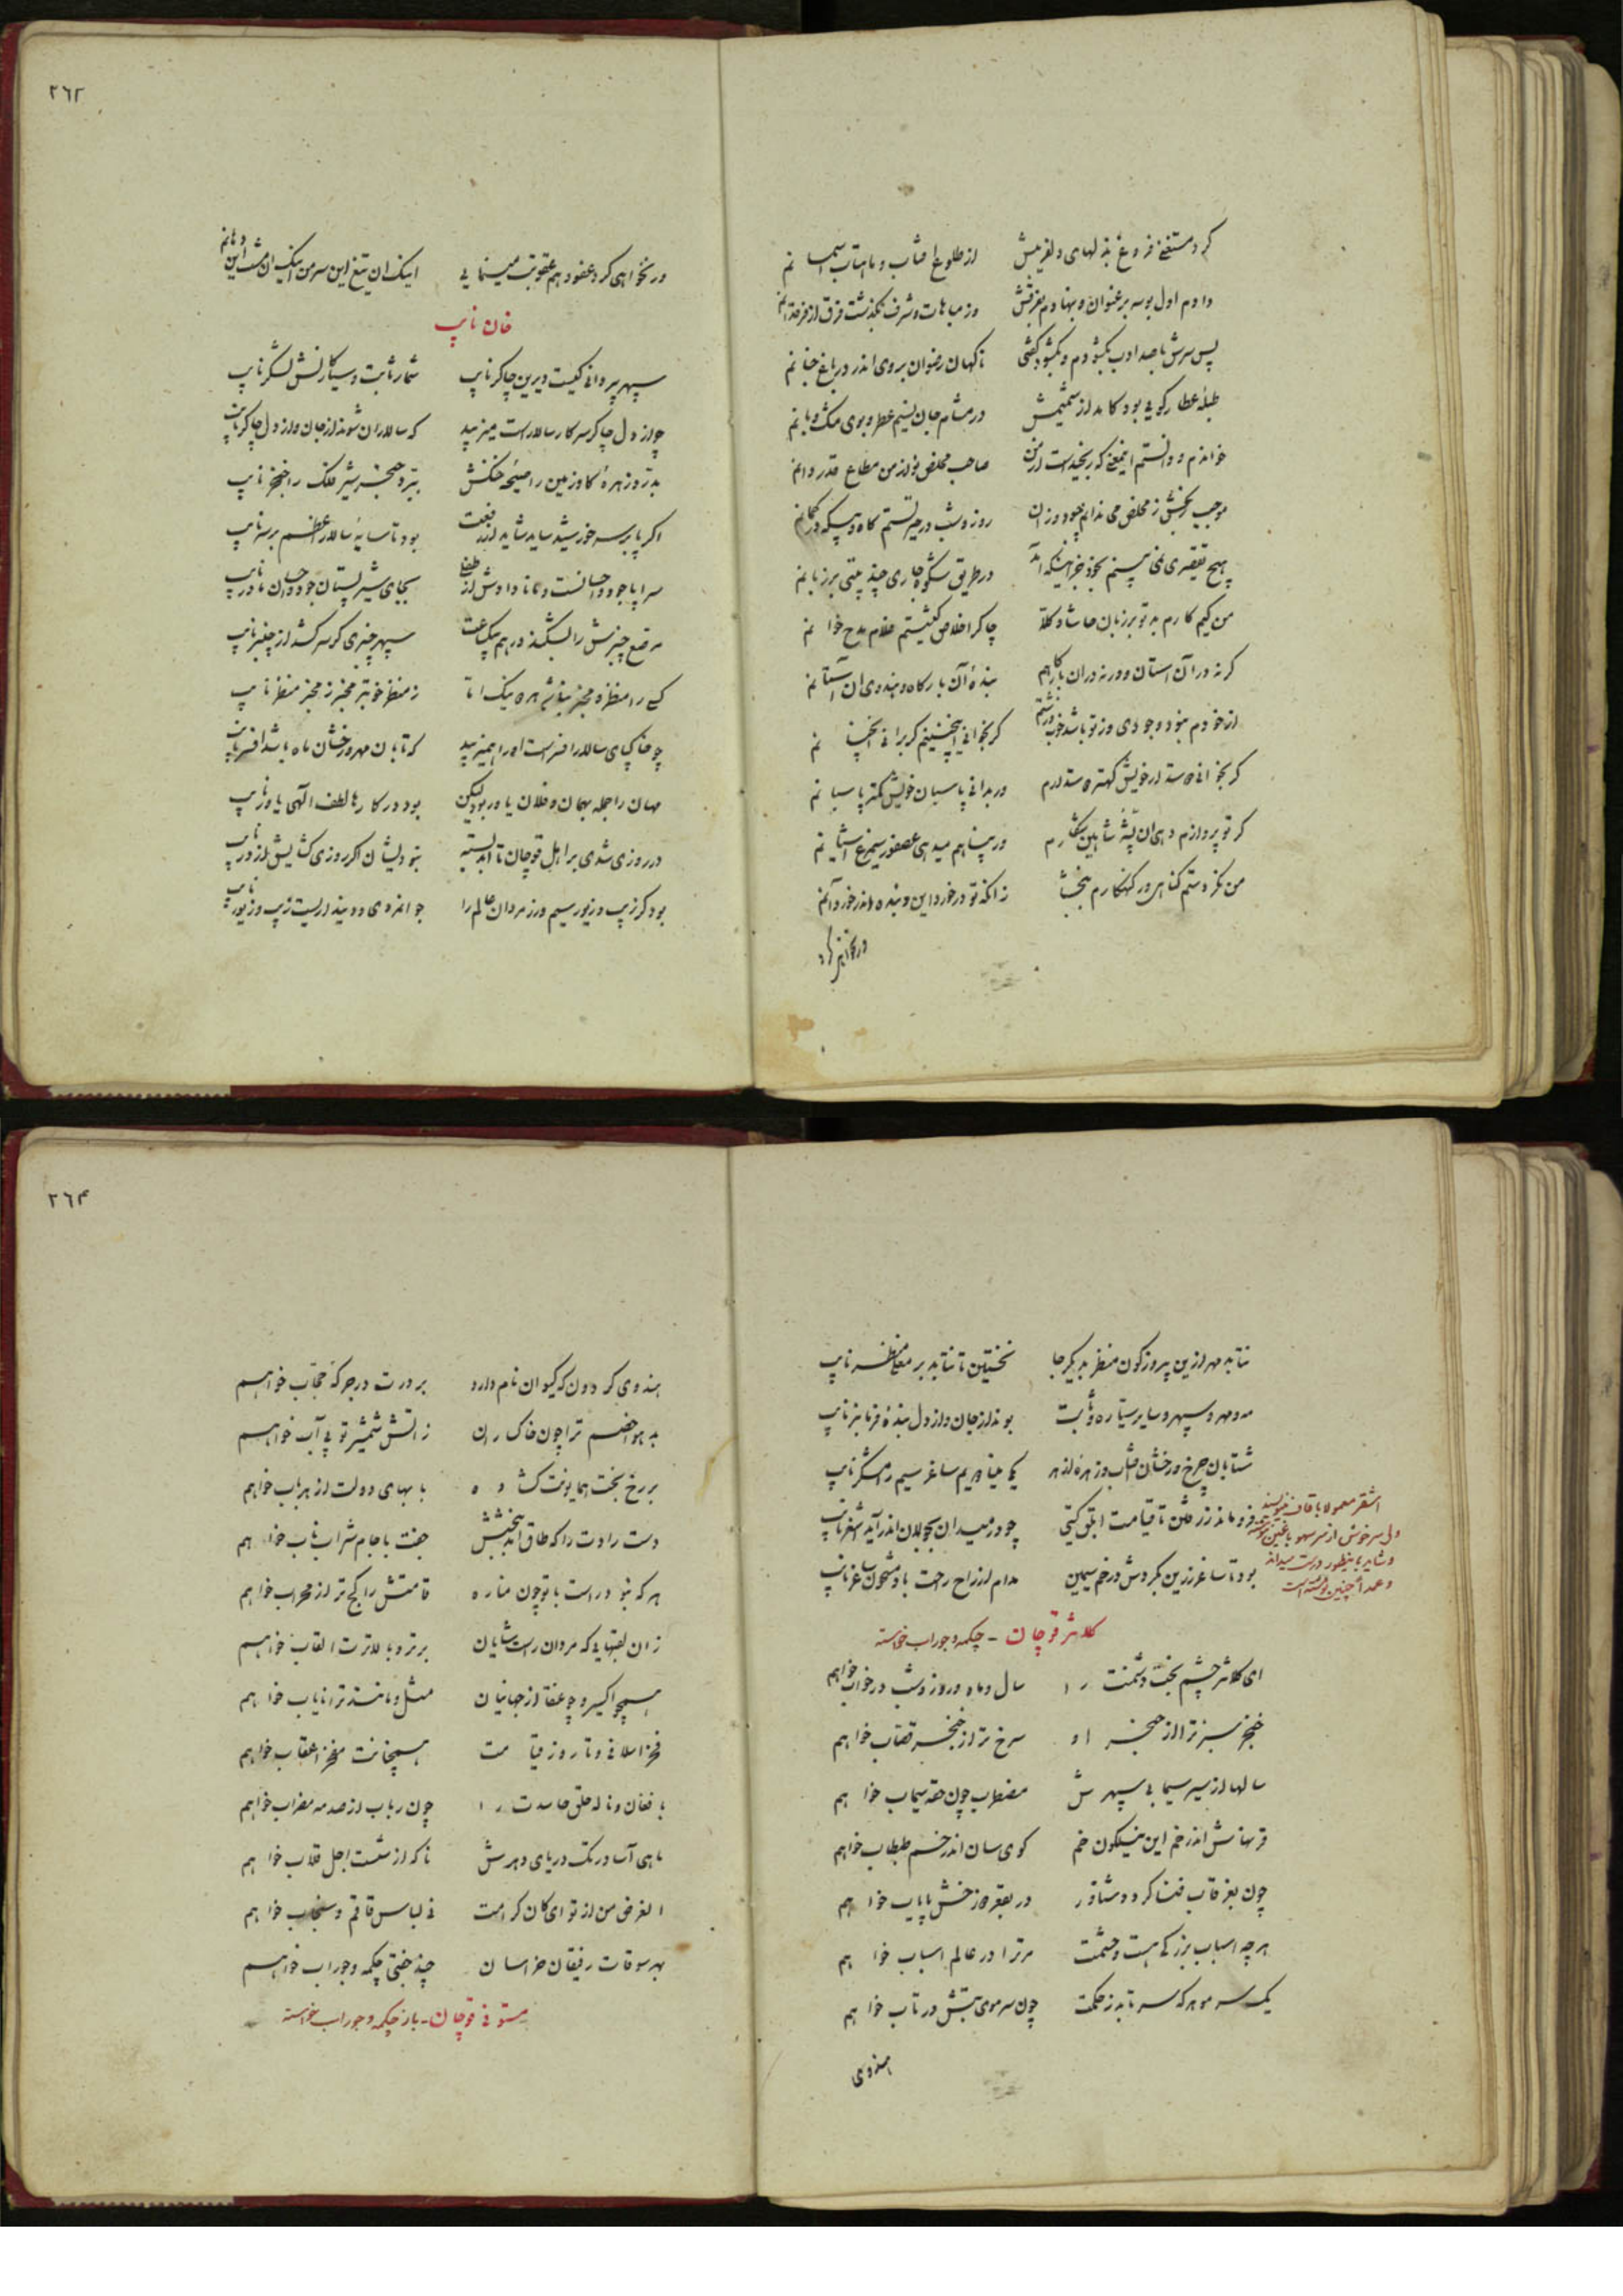 کرد مستغنی فروغ بذلهای دلفریبش از طلوع افتاب و ماهتاب اسمانم
دادم اول بوسه بر عنوان و بنهادم بفرقش وز مباهات و شرف بگذشت فرق از فرقدانم
پس سرش با صد ادب بگشودم و بگشود گفتی ناگهان رضوان بروی اندر در باغ جنانم
طبله عطار گویی بود کامد از شمیمش در مشام جان نسیم عطر و بوی مشک و بانم
خواندم و دانستم اینمعنی که رنجیدست از من صاحب مخلص نواز من مطاع قدردانم
موجب رنجش ز مخلص می ندانم چبود و زان روز و شب در حیرتستم گاه و بیگه در گمانم
هیچ تقصیری نمی بینم بخود جز اینکه آمد در طریق شکوه جاری چند بیتی بر زبانم
من کیم کارم بد تو بر زبان حاشا و کلا چاکر اخلاص کیشستم غلام مدح خوانم
گر نه در آن آستان و ور نه در ان بارگاهم بنده آن بارگاه و هندوی ان آستانم
از خودم نبود وجودی وز تو باشد خوب و زشتم گر بخوانی اینچنینم گر برانی انچنانم
گر بخوانی از خویش کهتر ور بدانی پاسبان خویش کمتر پاسبانم
گر تو پروازم دهی ان پشه شاهین شکارم ور پناهم میدهی عصفور سیمرغ اشیانم
من نکردستم گناهی ور گنهکارم ببخشا زانکه تو در خورد این و بنده اندر خورد آنم
ور نخواهی کرد
٢٦٣
ور نخواهی کرد عفو و هم عقوبت مینمایی اینک ان تیغ این سر من اینک ان مشت این دهانم
خان نایب
سپهر پیر دانی کیست دیرین چاکر نایب شمار ثابت و سیارگانش لشکر نایب
چو از دل چاکر سرکار سالارست میزیبد که سالاران شوند از جان و از دل چاکر نایب
بدرد زهره گاو زمین را صیحه خنگش ببرد حنجر شیر فلک را خنجر نایب
اگر پا بر سر خورشید ساید شاید از رفعت بود تا سایه سالار اعظم بر سر نایب
سراپا جود و احسانست و مانا دادش از طفلی بجای شیر پستان جود و احسان مادر نایب
مرقع چنبرش را بشکند در هم بیک ساعت سپهر چنبری گر سر کشد از چنبر نایب
کسی را منظر و مخبر نباشد همره نیک اما ز منظر خوبتر مخبر ز مخبر منظر نایب
چو خاک پای سالار افسرست او را همیزیبد که تابان مهر و رخشان ماه باشد افسر نایب
مهان را جمله بهمان و فلان یاور بود لیکن بود در کارها لطف الهی یاور نایب
در روزی شدی بر اهل قوچان تا ابد بسته نبودیشان اگر روزی گشایش از در نایب
بود گر زیب و زیور سیم و زر مردان عالم را جوانمردی و دینداریست زیب و زیور نایب
نتابد مهر ازین پیروزه گون منظر بدیگر جا نخستین تا نتابد بر معلا منظر نایب
مه و مهر و سپهر و سایر سیاره و ثابت بوند از جان و از دل بنده فرمانبر نایب
شتابان چرخ و رخشان افتاب و زهره ازهر یکی مینا دویم ساغر سیم رامشگر نایب
فرو ماند ز رفتن تا قیامت ابلق گیتی چو در میدان بجولان اندر آید اشغر نایب
بود تا ساغر زرین بگردش در خم سیمین مدام از راح راحت باد مشحون ساغر نایب
اشقر معمولا با قاف مینویسند
ولی سرخوش از سر سهو با غین نوشته
و شاید بابنطور درست میداند
و عمداً چنین نوشته است
کلانتر قوچان - چکمه و جوراب خواسته
ای کلانتر چشم بخت دشمنت را سال و ماه و روز و شب در خواب خواهم
خنجر سبز ترا از حنجر او سرخ تر از خنجر قصاب خواهم
سالها از سیر سیمابی سپهرش مضطرب چون حقه سیماب خواهم
قرنهاش اندر خم این نیلگون خم گوی سان اندر خم طبطاب خواهم
چون بغرقاب فنا گردد شناور در بقعر دوزخش پایاب خواهم
هر چه اسباب بزرگی هست و حشمت مر ترا در عالم اسباب خواهم
یک سر مو هر که سر تابد ز حکمت چون سر موی بتش در تاب خواهم
هندوی
٢٦٤
هندوی گردون که کیوان نام دارد بر درت در جرگه حجاب خواهم
بد هوا خصم ترا چون خاک ران ز اتش شمشیر تو بی آب خواهم
بر رخ بخت همایونت گشاده بابهای دولت از هر باب خواهم
دست رادت را که طاق اندر ببخشش جفت با جام شراب ناب خواهم
هر که نبود راست با تو چون مناره قامتش را کج تر از محراب خواهم
زان لقبهایی که مردان راست شایان برتر و بالاترت القاب خواهم
همچو اکسیر و چو عنقا از جهانیان مثل و مانند ترا نایاب خواهم
فخر اسلافی و تا روز قیامت همچنانت مفخر اعقاب خواهم
با فغان و ناله حلق حاسدت را چون رباب از صدمه مضراب خواهم
ماهی آسا در تک دریای دهرش تا که از شست اجل قلاب خواهم
الغرض من از تو ای کان کرامت نی لباس قاقم و سنجاب خواهم
بهر سوقات رفیقان خراسان چند جفتی چکمه و جوراب خواهم
مستوفی قوچان - باز چکمه و جوراب خواسته